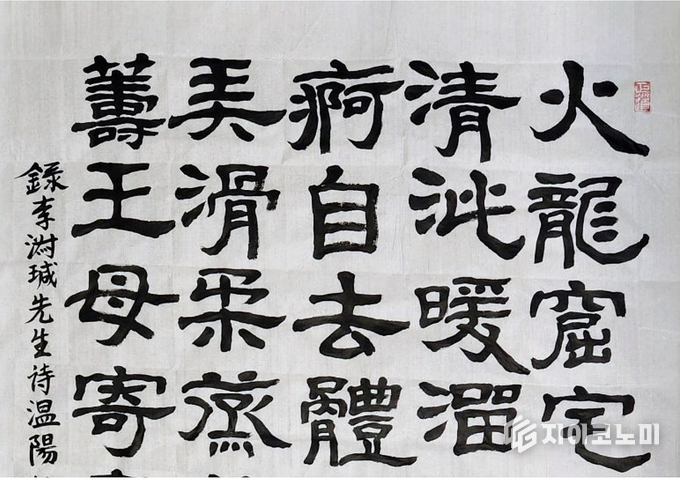 火龍窟宅
清泚暖溜
痾自去體
美滑柔蒸
薵王母寄
録李瑊先生诗温陽
지이코노미